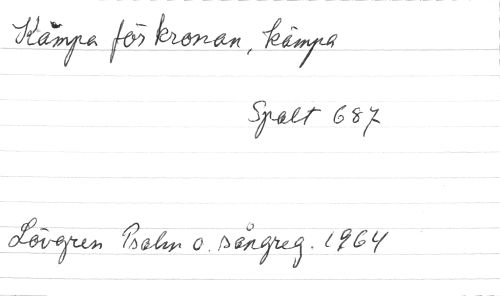 Kämpa för kronan, kämpa
Spalt 687
Lövgren Psalm o. sångreg. 1964